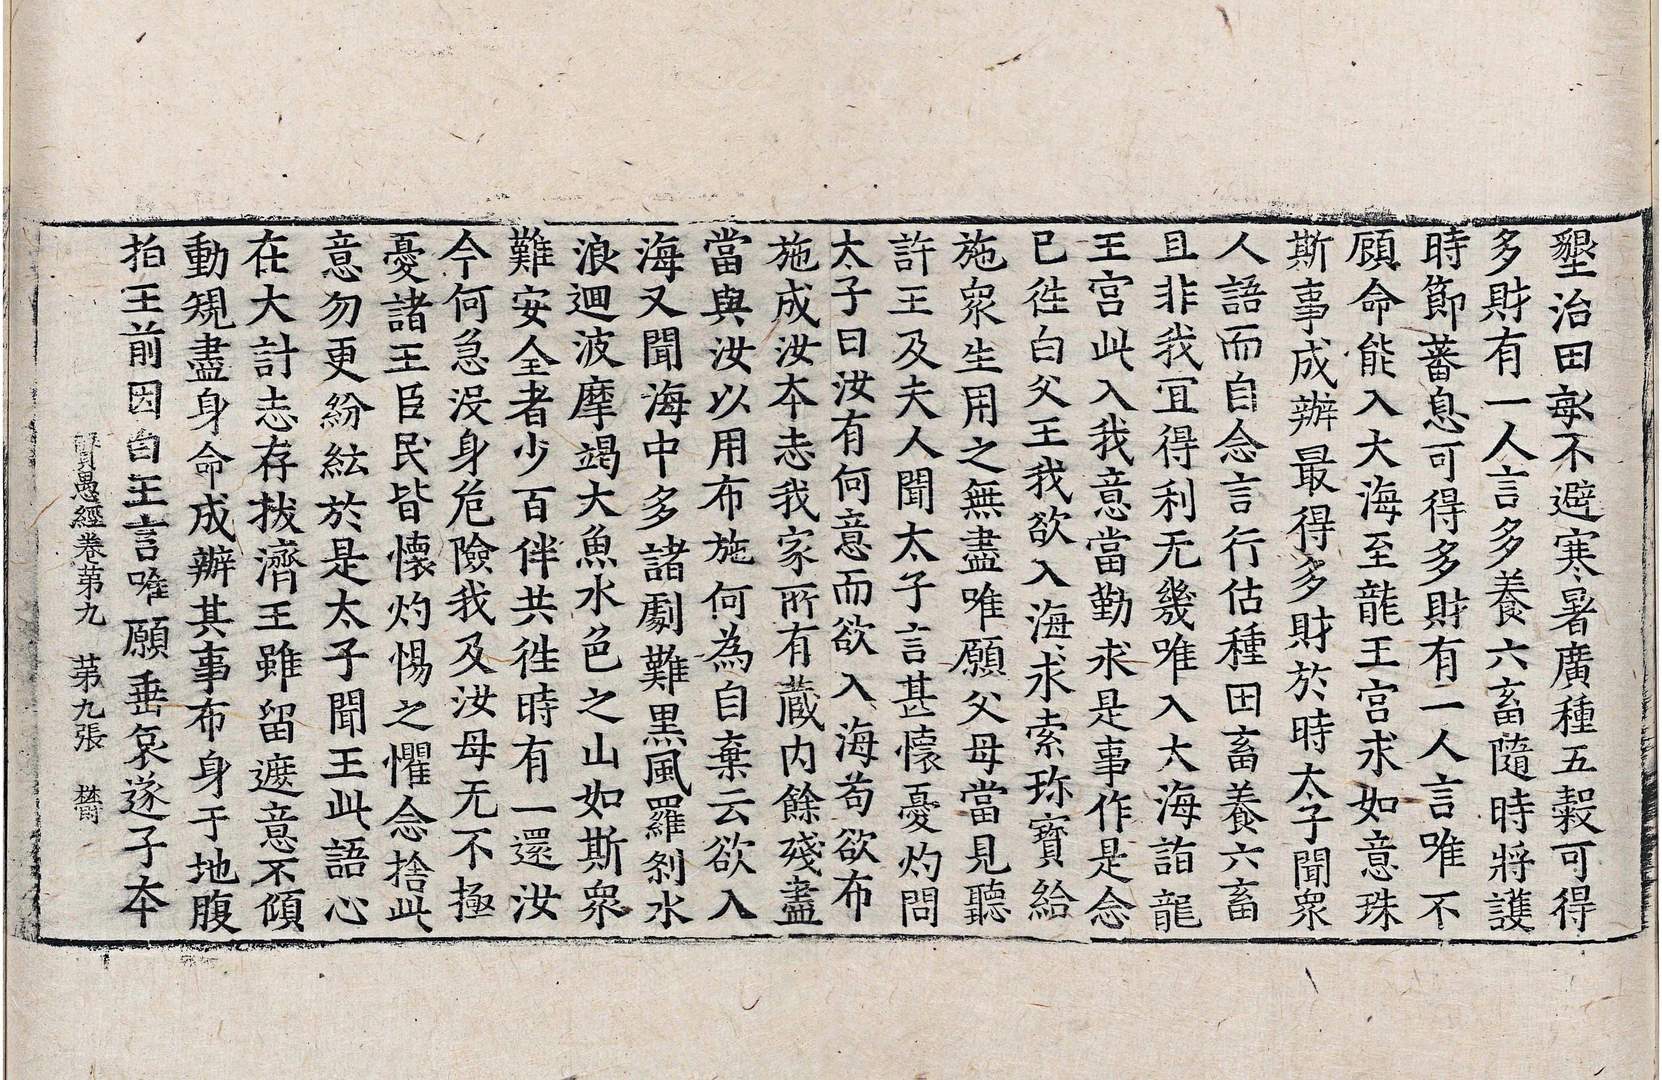 墾治田畝不避寒暑廣種五穀可得
多財有一人言多養六畜隨時將護
時節蕃息可得多財有一人言唯不
顧命能入大海至龍王宮求如意珠
斯事成辦最得多財於時太子聞衆
人語而自念言行估種田畜養六畜
且非我冝得利无幾唯入大海詣龍
王宮此入我意當勤求是事作是念
已往白父王我欲入海求索珎寶給
施衆生用之無盡唯願父母當見聽
許王及夫人聞太子言甚懷憂灼問
太子曰汝有何意而欲入海茍欲布
施成汝夲志我家所有蔵內餘殘盡
當與汝以用布施何為自棄云欲入
海又聞海中多諸劇難黒風羅剎水
浪迴波摩竭大魚水色之山如斯衆
難安全者少百伴共往時有一還汝
今何急沒身危險我及汝母无不極
憂諸王臣民皆懷灼惕之懼念捨此
意勿更紛紜於是太子聞王此語心
在大計志存拔濟王雖留遮意不傾
動䂓盡身命成辦其事布身于地腹
拍王前因白王言唯願垂哀遂子夲
賢愚經卷第九 第九張 欝